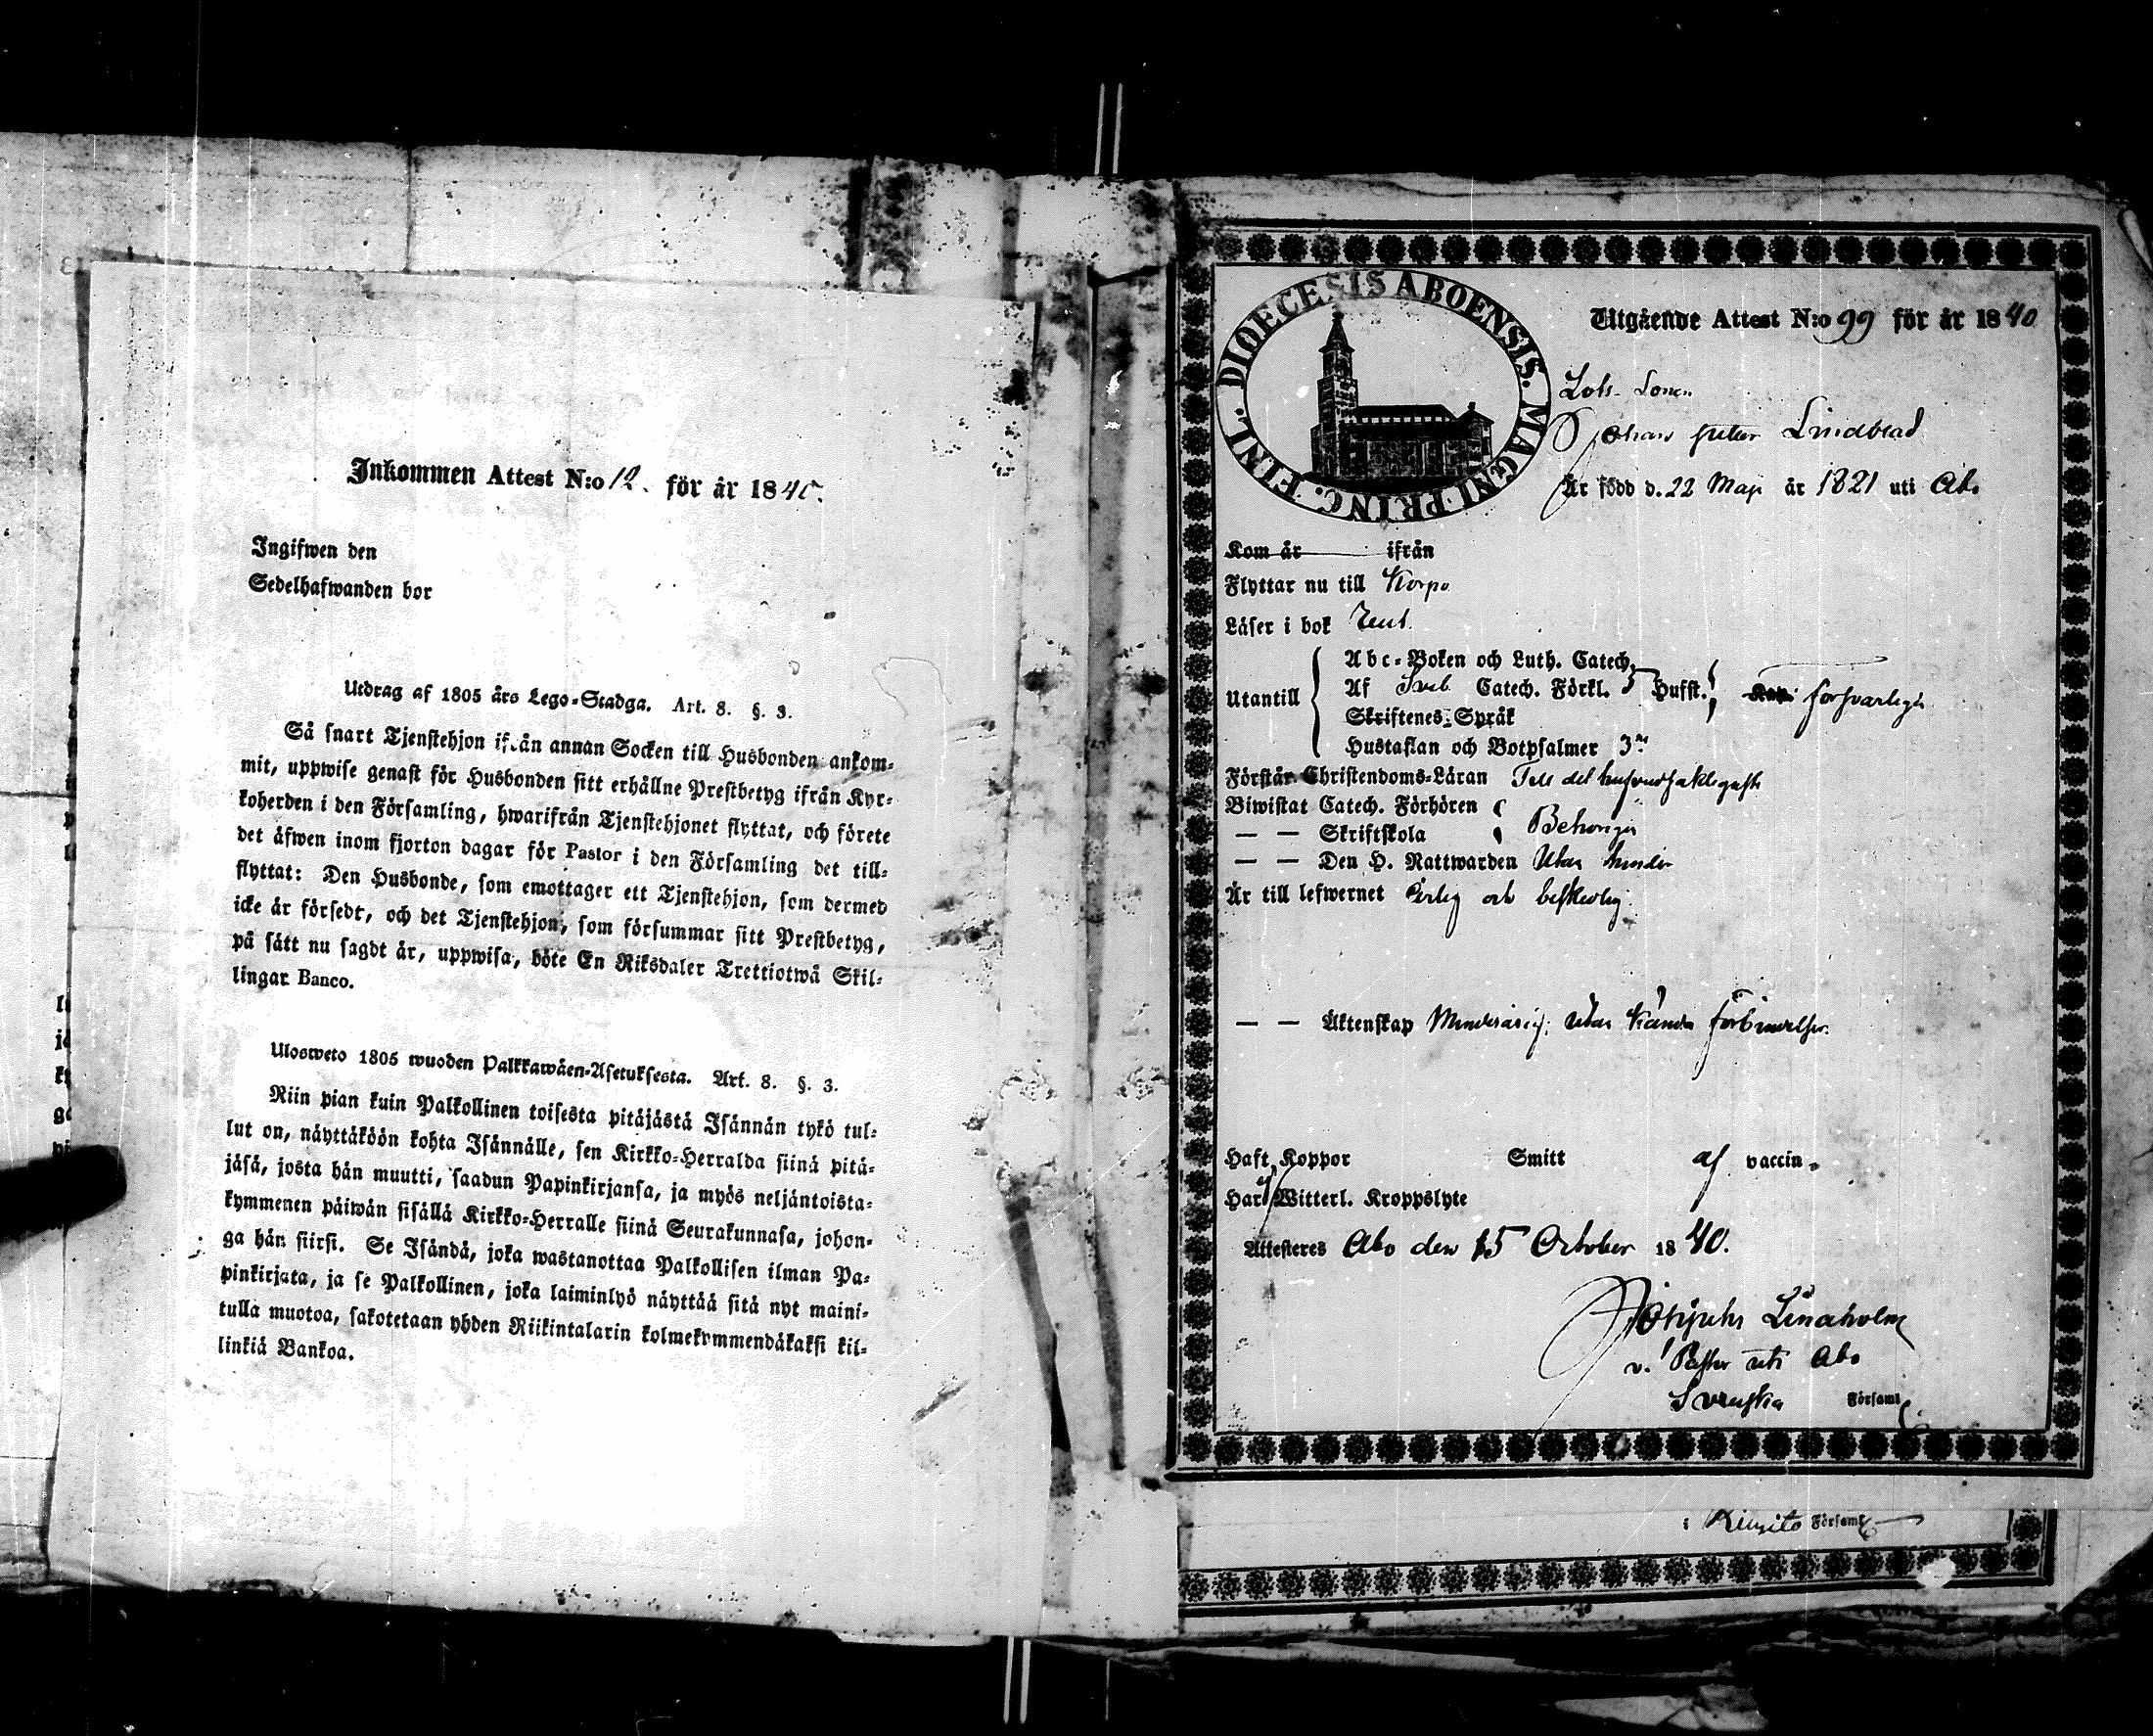 Inkommen Attest N:o 12. för år 1840.
Ingifwen den
Sedelhafwanden bor
Utdrag af 1805 års Lego-Stadga. Art. 8. §. 3.
Så snart Tjenstehjon ifrån annan Socken till Husbonden ankom-
mit, uppwise genast för Husbonden sitt erhållne Prestbetyg ifrån Kyr-
koherden i den Församling, hwarifrån Tjenstehjonet flyttat, och förete
det äfwen inom fjorton dagar för Pastor i den Församling det till-
flyttat: Den Husbonde, som emottager ett Tjenstehjon, som dermed
icke är försedt, och det Tjenstehjon, som försummar sitt Prestbetyg,
på sätt nu sagdt är, uppwisa, böte En Riksdaler Trettiotwå Skil-
lingar Banco.
Ulosweto 1805 wuoden Palkkawäen-Asetuksesta. Art. 8. §. 3.
Niin pian kuin Palkollinen toisesta pitäjästä Isännän tykö tul-
lut on, näyttäköön kohta Isännälle, sen Kirkko-Herralda siinä pitä-
jäsä, josta hän muutti, saadun Papinkirjansa, ja myös neljäntoista-
kymmenen päiwän sisällä Kirkko-Herralle siinä Seurakunnasa, johon-
ga hän siirsi. Se Isändä, joka wastanottaa Palkollisen ilman Pa-
pinkirjata, ja se Palkollinen, joka laiminlyö näyttää sitä nyt maini-
tulla muotoa, sakotetaan yhden Riikintalarin kolmekymmendäkaksi kil-
linkiä Bankoa.
DIOECESIS ABOENSIS. MAGNI PRINC. FINL.
Utgående Attest N:o 99 för år 1840
Johan Lindblad
Är född d. 22 Maji år 1821 uti Åbo
Kom år ifrån
Flyttar nu till Korpo
Läser i bok Rent.
Abc-Boken och Luth. Catech.
Utantill Af Sveb. Catech. Förkl. 5 Hufst. försvarligen
Skriftenes Språk
Hustaflan och Botpsalmer 3
Förstår Christendoms-Läran Till det hufvudsakligaste
Biwistat Catech. Förhören
— — Skriftskola Behörigen
— — Den H. Nattwarden Utan hinder
Är till lefwernet ärlig och beskedlig.
— — Äktenskap Minderårig; utan kända förbindelser.
Haft Koppor Smitt af vaccin
Har ej Witterl. Kroppslyte
Attesteres Åbo den 15 October 1840.
Lindholm
v. Pastor uti Åbo
Svenska Församl
i Kimito Församl